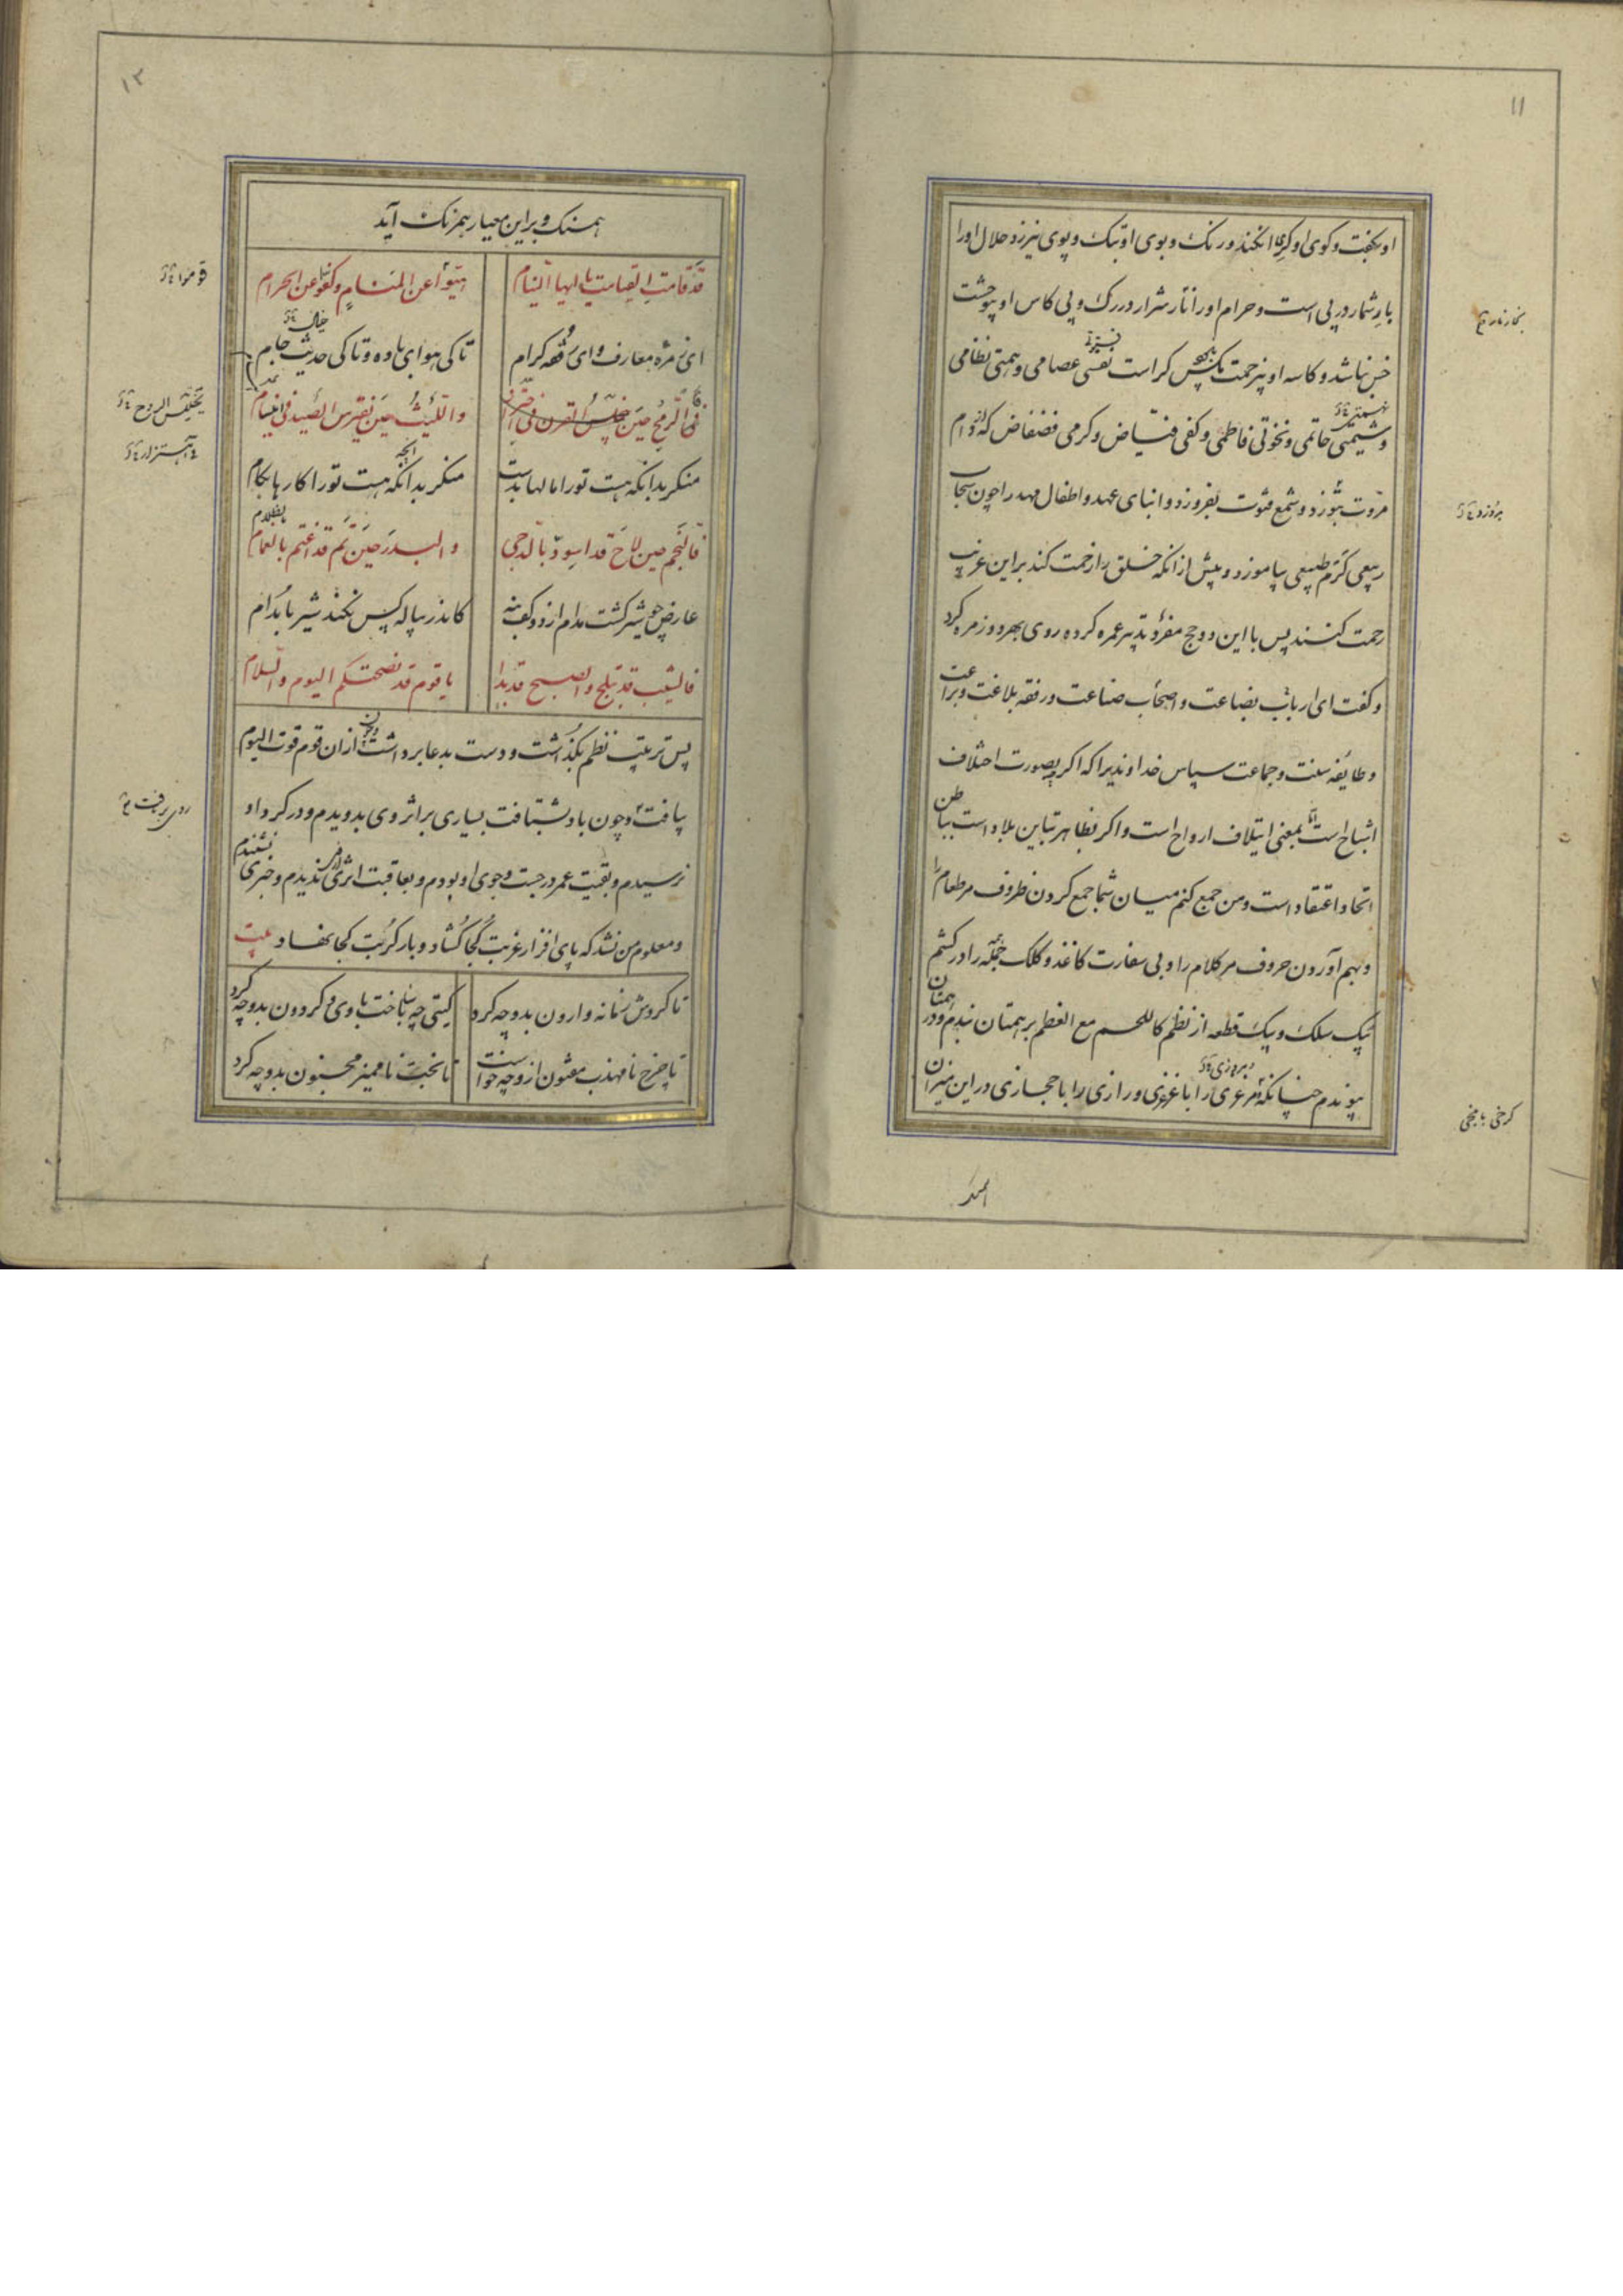 ۱۱
او بگفت و کوی او کری انکند و رنک و بوی او تبک و پوی نیرزد حلال اورا
بار شمار در پی است و حرام اورا نار شرار در رک و پی کاس او بیوحشت
خس نباشد و کاسه او بیزحمت مکس کراست نفسی عصامی و همتی نظامی
و شیمتی حاتمی و نخوتی فاطمی و کفی فیاض و کرمی فضفاض که وام
مروت بتوزد و شمع فتوت بفروزد و ابنای عهد و اطفال مهد را چون سحاب
ربیعی کرم طبیعی بیاموزد و پیش از انکه خلق را زحمت کند براین غریب
رحمت کنند پس با این دو حج مفرد بتدبیر عمره کرد و روی بهر دو زمره کرد
و کفت ای ارباب بضاعت و اصحاب صناعت و رفقه بلاغت و براعت
و طایفه سنت و جماعت سپاس خداوندیرا که اکر بصورت اختلاف
اشباح است بمعنی ایتلاف ارواح است و اکر بظاهر تباین بلاد است بباطن
اتحاد اعتقاد است و من جمع کنم میان شما جمع کردن ظروف مر طعام را
و بهم آوردن حروف مر کلام را و بی سفارت کاغذ و کلک جمله را در کشم
بیک سلک و بیک قطعه از نظم کاللحم مع العظم بر همتان بندم و در همتان
پیوندم چنانکه مرغزی را با غزی و رازی را با حجازی در این میزان
کرخی با بلخی
۱۲
همسنک و براین معیار همرنک آید
قد قامت القیامت یا ایها النیام
هبوا عن المنام و کفوا عن الحرام
قوموا
ای زمره معارف و ای رفقه کرام
تا کی هوای باده و تا کی حدیث جام
خیال
فالرمح حین خلس القرن فی
واللیث حین یفترس الصید فی
منکر بدانکه هست تورا مالها بدست
منکر بدانکه هست تورا کارها بکام
فالنجم حین لاح قد اسود بالدجی
والبدر حین تم قد اغتم بالغمام
بالظلام
عارض چو شیر کشت مدام از دو کف بنه
کاندر پیاله کس نکند شیر با مدام
فالشیب قد تبلج والصبح قد بدا
یا قوم قد نصحتکم الیوم والسلام
پس ترتیب نظم بکذاشت و دست بدعا برداشت و چون از ان قوم قوت الیوم
بیافت و چون باد بشتافت بسیاری بر اثر وی بدویدم و در کرد او
نرسیدم و بقیت عمر در جست وجوی او بودم و بعاقبت اثری ندیدم و خبری نشنیدم
و معلوم من نشد که پای افزار غربت کجا کشاد و بار کربت کجا نهاد
تا کردش زمانه وارون بدو چه کرد
کیتی چه باخت با وی و کردون بدو چه کرد
تا چرخ نامهذب مفتون ازو چه خواست
تا بخت نا ممیز مجنون بدو چه کرد